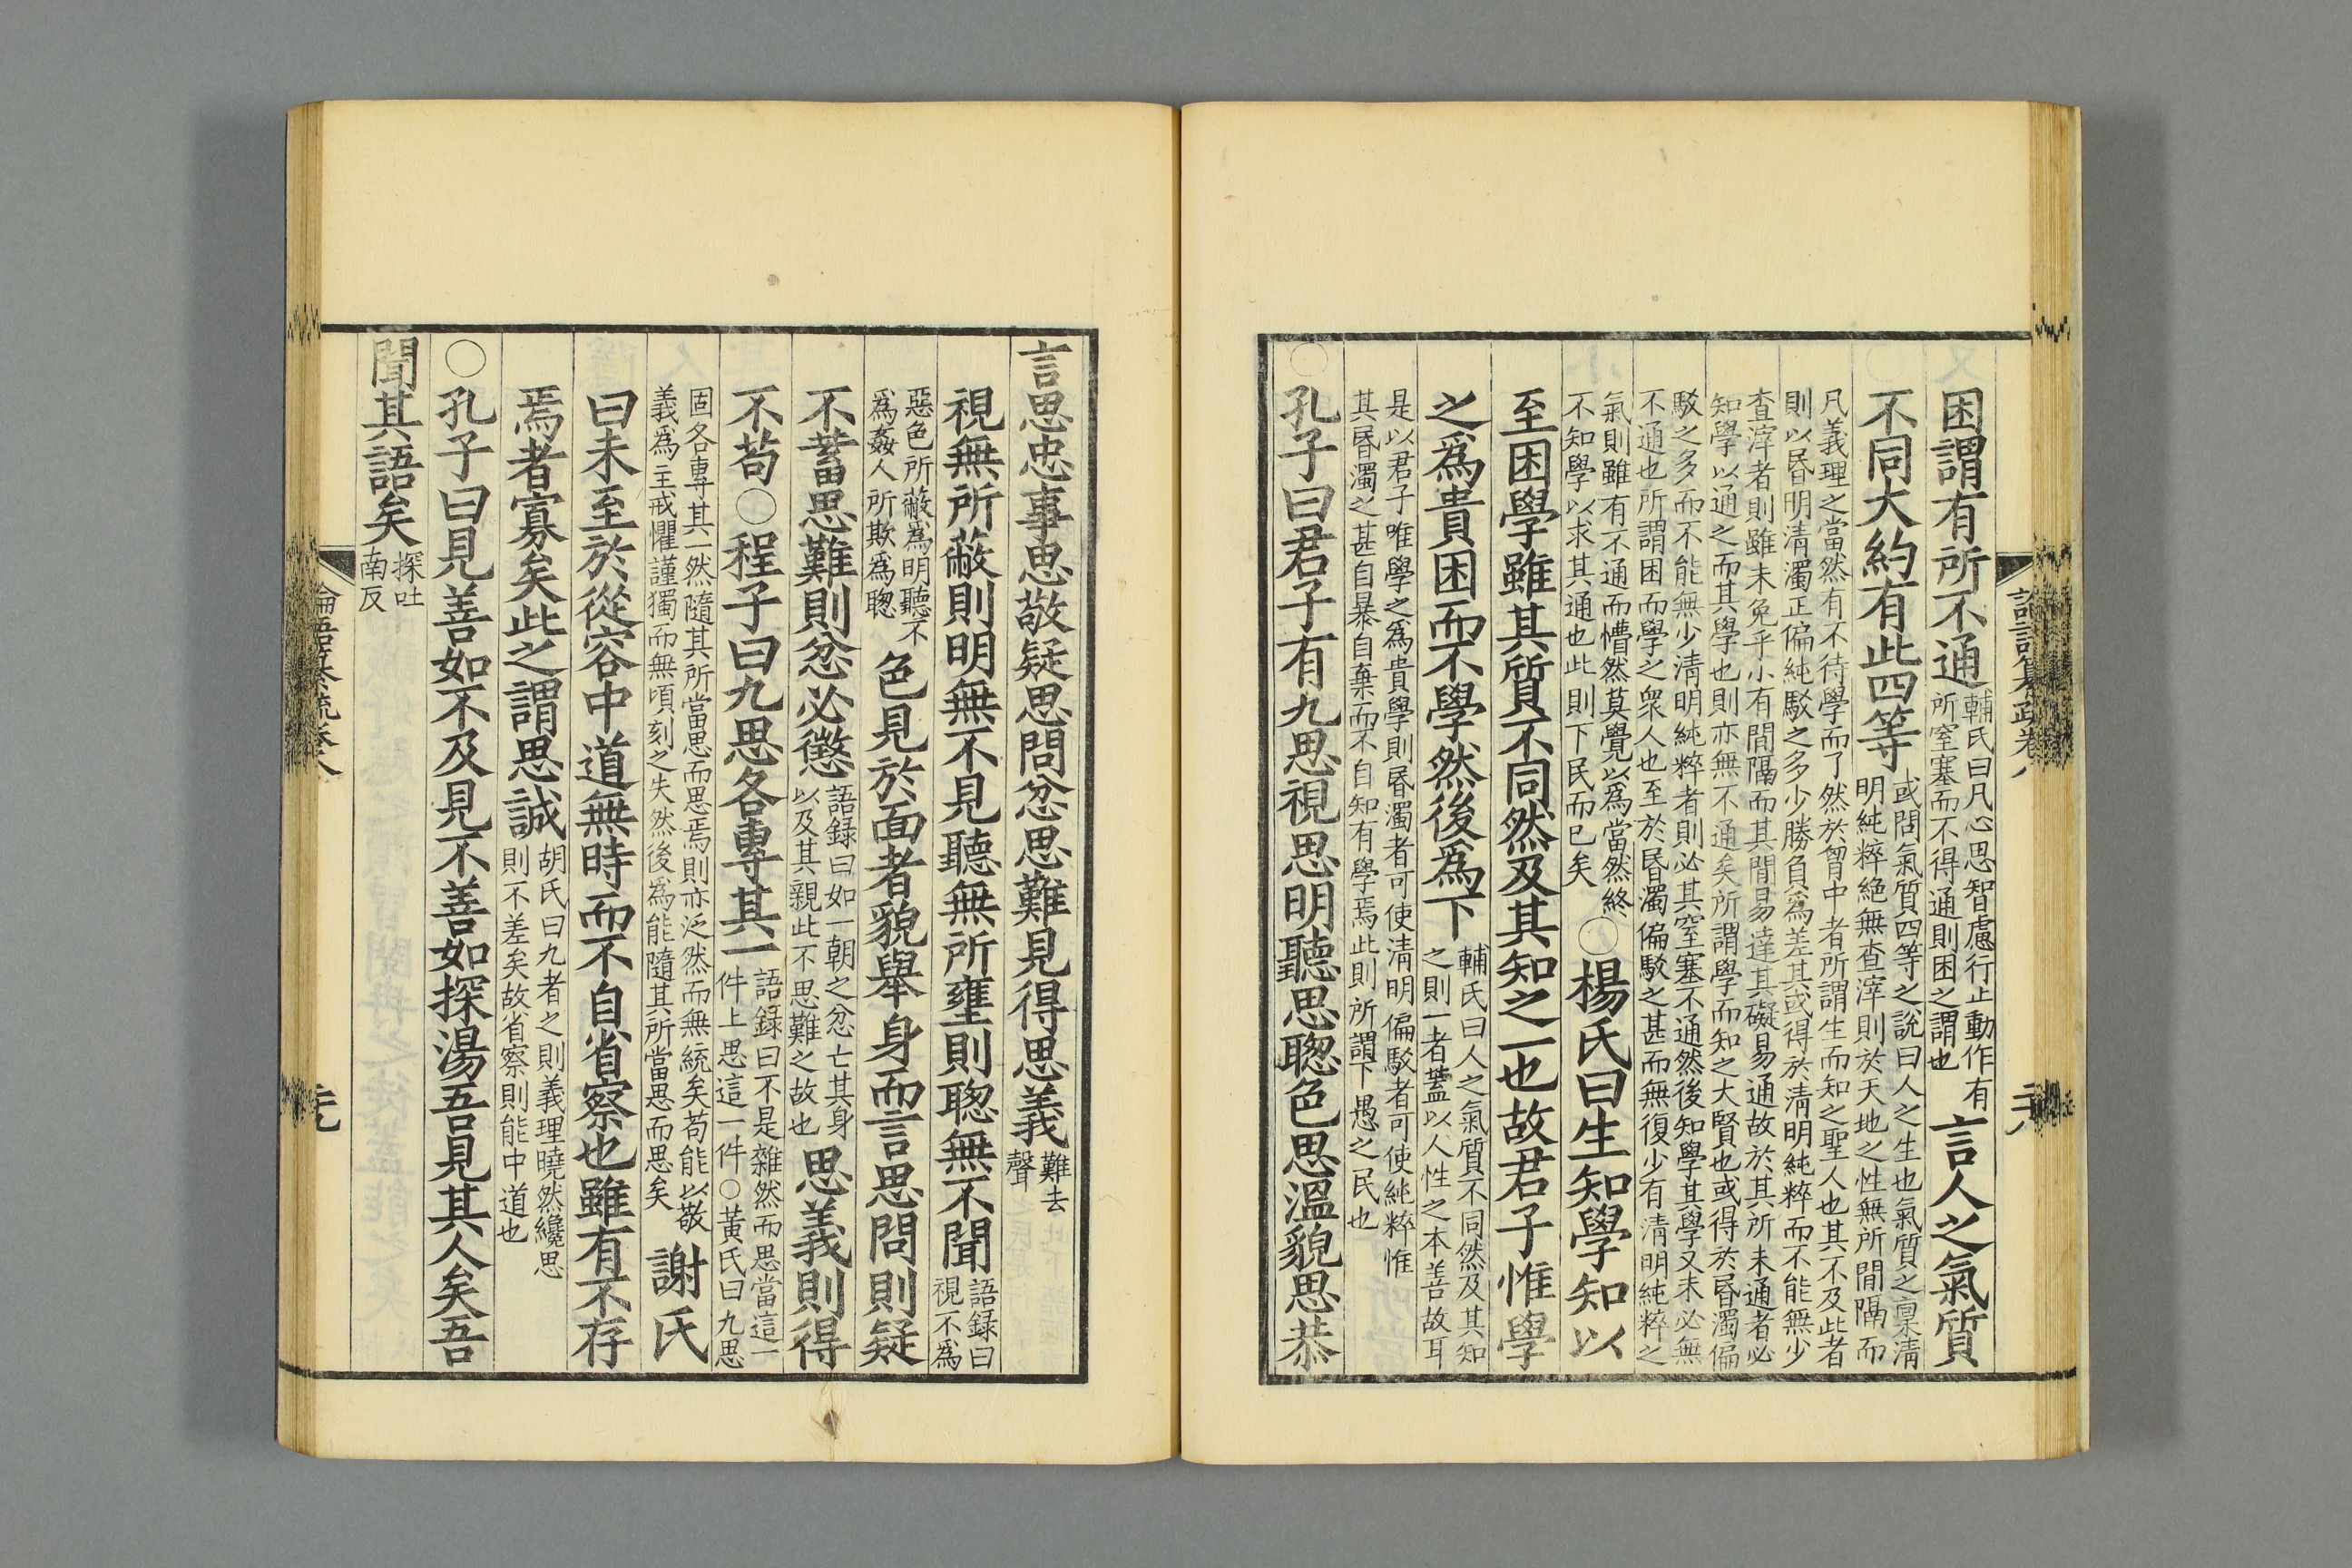 困謂有所不通輔氏曰凡心思智慮行止動作有所窒塞而不得通則困之謂也言人之氣質
不同大約有此四等或問氣質四等之說曰人之生也氣質之稟淸明純粹絶無查滓則於天地之性無所間隔而
凡義理之當然有不待學而了然於胷中者所謂生而知之聖人也其不及此者
則以昬明淸濁正偏純駁之多少勝負爲差其或得於淸明純粹而不能無少
查滓者則雖未免乎小有間隔而其間易達其礙易通故於其所未通者必
知學以通之而其學也則亦無不通矣所謂學而知之大賢也或得於昬濁偏
駁之多而不能無少淸明純粹者則必其窒塞不通然後知學其學又未必無
不通也所謂困而學之衆人也至於昬濁偏駁之甚而無復少有淸明純粹之
氣則雖有不通而懵然莫覺以爲當然終不知學以求其通也此則下民而已矣○楊氏曰生知學知以
至困學雖其質不同然及其知之一也故君子惟學
之爲貴困而不學然後爲下輔氏曰人之氣質不同然及其知之則一者蓋以人性之本善故耳
是以君子唯學之爲貴學則昬濁者可使淸明偏駁者可使純粹惟
其昬濁之甚自暴自棄而不自知有學焉此則所謂下愚之民也
○孔子曰君子有九思視思明聽思聦色思溫貌思恭
言思忠事思敬疑思問忿思難見得思義難去聲
視無所蔽則明無不見聽無所壅則聦無不聞語録曰視不爲
惡色所蔽爲明聽不爲姦人所欺爲聦色見於面者貌舉身而言思問則疑
不蓄思難則忿必懲語録曰如一朝之忿亡其身以及其親此不思難之故也思義則得
不苟○程子曰九思各專其一語録曰不是雜然而思當這一件上思這一件○黃氏曰九思
固各專其一然隨其所當思而思焉則亦泛然而無統矣苟能以敬義爲主戒懼謹獨而無頃刻之失然後爲能隨其所當思而思矣謝氏
曰未至於從容中道無時而不自省察也雖有不存
焉者寡矣此之謂思誠胡氏曰九者之則義理曉然纔思則不差矣故省察則能中道也
○孔子曰見善如不及見不善如探湯吾見其人矣吾
聞其語矣探吐南反